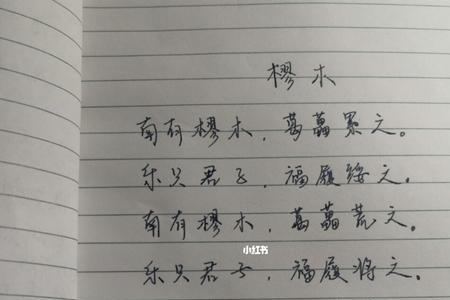 樛木
南有樛木,葛藟累之。
乐只君子,福履绥之。
南有樛木,葛藟荒之。
小红书
乐只君子,福履将之。